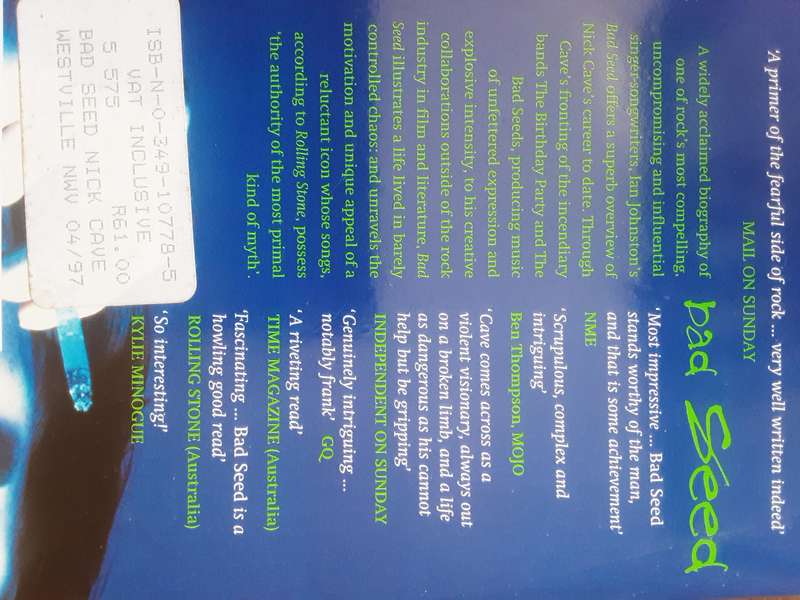 'A primer of the fearful side of rock ... very well written indeed'
MAIL ON SUNDAY
bad Seed
A widely acclaimed biography of
one of rock's most compelling,
uncompromising and influential
singer-songwriters, Ian Johnston's
Bad Seed offers a superb overview of
Nick Cave's career to date. Through
Cave's fronting of the incendiary
bands The Birthday Party and The
Bad Seeds, producing music
of unfettered expression and
explosive intensity, to his creative
collaborations outside of the rock
industry in film and literature, Bad
Seed illustrates a life lived in barely
controlled chaos: and unravels the
motivation and unique appeal of a
reluctant icon whose songs,
according to Rolling Stone, possess
'the authority of the most primal
kind of myth'.
'Most impressive ... Bad Seed
stands worthy of the man,
and that is some achievement'
NME
'Scrupulous, complex and
intriguing'
Ben Thompson, MOJO
'Cave comes across as a
violent visionary, always out
on a broken limb, and a life
as dangerous as his cannot
help but be gripping'
INDEPENDENT ON SUNDAY
'Genuinely intriguing ...
notably frank' GQ
'A riveting read'
TIME MAGAZINE (Australia)
'Fascinating ... Bad Seed is a
howling good read'
ROLLING STONE (Australia)
'So interesting!'
KYLIE MINOGUE
ISB-N-0-349-10778-5
VAT INCLUSIVE
5 575 R61.00
BAD SEED NICK CAVE
WESTVILLE NWV 04/97